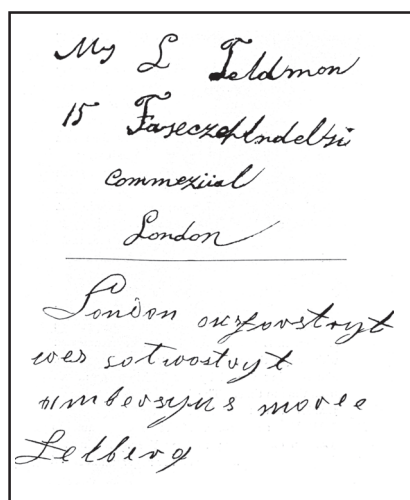 My L Feldmon
15 Faseczehlndeltsi
commeziial
London
London ouzfovstryt
wes sotwostryt
umbersyns movee
Lelberg